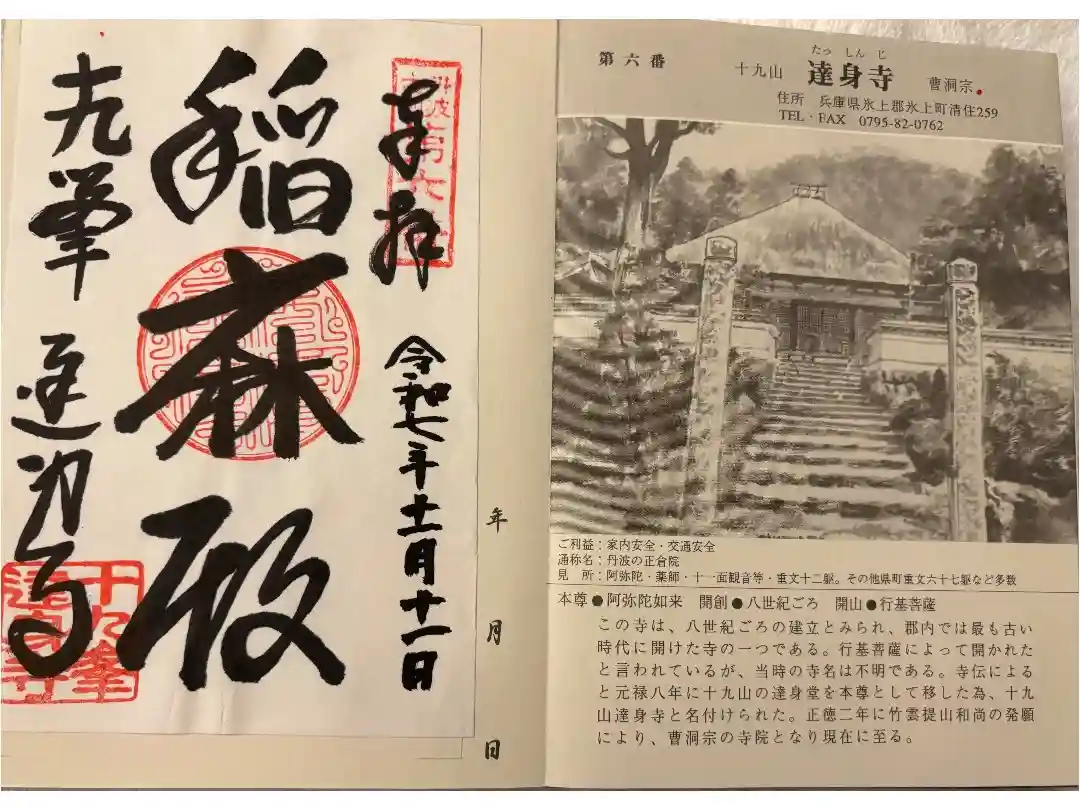 第六番
たっしんじ
十九山 達身寺 曹洞宗
住所 兵庫県氷上郡氷上町清住259
TEL・FAX 0795-82-0762
ご利益：家内安全・交通安全
通称名：丹波の正倉院
見 所：阿弥陀・薬師・十一面観音等・重文十二躯。その他県町重文六十七躯など多数
本尊●阿弥陀如来 開創●八世紀ごろ 開山●行基菩薩
この寺は、八世紀ごろの建立とみられ、郡内では最も古い
時代に開けた寺の一つである。行基菩薩によって開かれた
と言われているが、当時の寺名は不明である。寺伝による
と元禄八年に十九山の達身堂を本尊として移した為、十九
山達身寺と名付けられた。正徳二年に竹雲提山和尚の発願
により、曹洞宗の寺院となり現在に至る。
年 月 日
奉拝
令和七年十一月十一日
稲麻殿
十九峯 達身寺
十九峯
達身寺